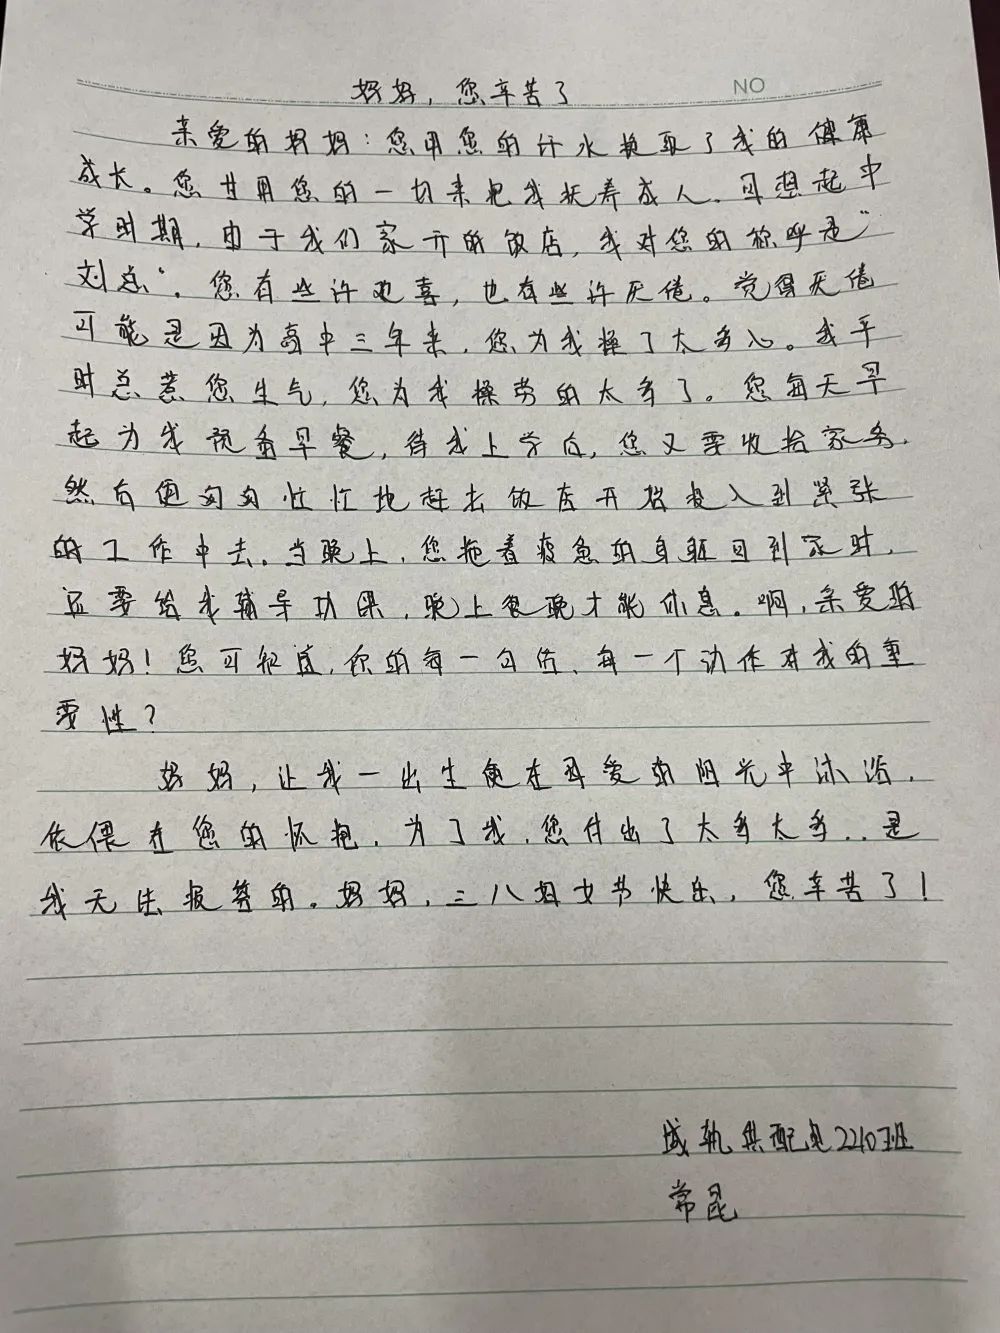 妈妈，您辛苦了
NO
亲爱的妈妈：您用您的汗水换取了我的健康
成长。您甘用您的一切来把我抚养成人。可想起中
学时期，由于我们家开的饭店，我对您的称呼是“
刘总“。您有些许欢喜，也有些许厌倦。觉得厌倦
可能是因为高中三年来，您为我操了太多心。我平
时总惹您生气，您为我操劳的太多了。您每天早
起为我预备早餐，待我上学后，您又要收拾家务，
然后便匆匆忙忙地赶去饭店开始投入到紧张
的工作中去。当晚上，您拖着疲惫的身躯回到家时，
还要给我辅导功课，晚上很晚才能休息。啊，亲爱的
妈妈！您可知道，你的每一句话、每一个动作对我的重
要性？
妈妈，让我一出生便在母爱的阳光中沐浴，
依偎在您的怀抱，为了我，您付出了太多太多..是
我无法报答的。妈妈，三八妇女节快乐，您辛苦了！
城轨供配电2210班
常昆